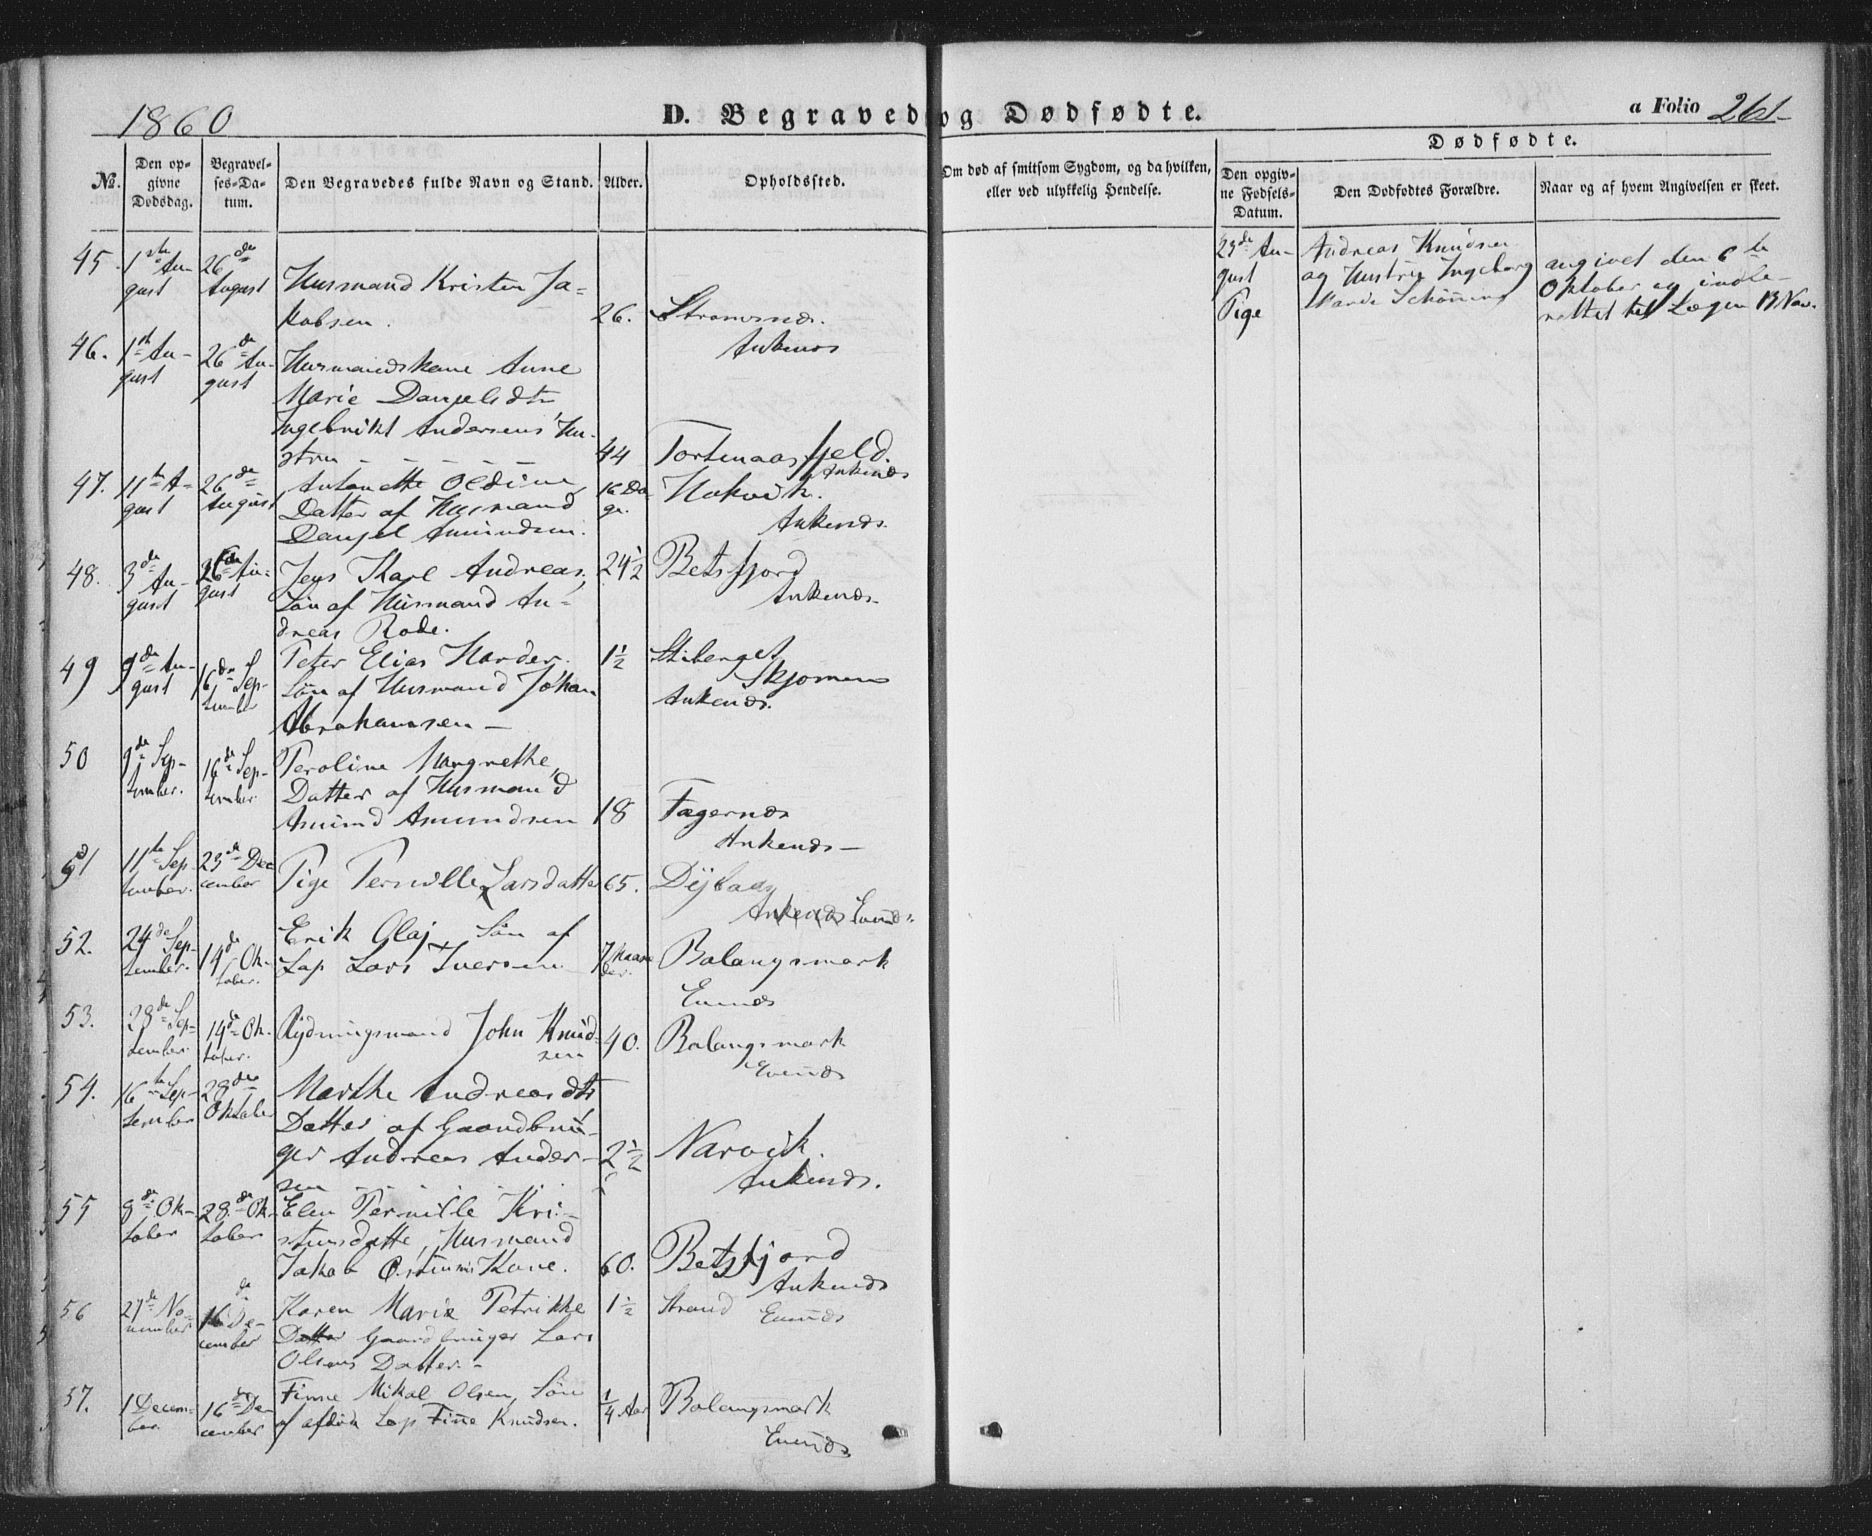 1860
D. Begraved og Dødfødte.
a Folio 261
Dødfødte.
No.
Den opgivne Dødsdag.
Begravelses-Datum.
Den Begravedes fulde Navn og Stand.
Alder.
Opholdssted.
Om død af smitsom Sygdom, og da hvilken, eller ved ulykkelig Hendelse.
Den opgivne Fødsels-Datum.
Den Dødfødtes Forældre.
Naar og af hvem Angivelsen er skeet.
45. 1ste August 26de August Husmand Kristen Jakobsen. 26. Ankenes
23de August Pige
Andreas Knudsen og Hustrue Ingeborg Schöning
angivet den 6te Oktober og indberettet til Lægen 13 Nov.
46. 1ste August 26de August Husmandskone Anne
Marie Danjelsdtr
Ingebrikt Andersens Hustru 44 Ankenes
47. 11te August 26de August Antonette Oldine,
Datter af Husmand
Danjel Amundsen. 16 Dage. Hakvik. Ankenes.
48. 3de August 26de August Jens Karl Andreas,
Søn af Husmand Andreas Rode. 24½ Betsfjord Ankenes
49 9de August 16de September Peter Elias Harder.
Søn af Husmand Johan
Abrahamsen 1½ Stiberget Skjomen
Ankenes.
50 9de September. 16de September Peroline Margrethe,
Datter af Husmand
Amund Amundsen 18 Fagernes
Ankenes
51 11te September. 23de December Pige Pernille Larsdatter 65.
Ankenes Evenes.
52. 24de September. 14de Oktober. Erik Olaj Søn af
Lap Lars Iversen 7 Maaneder. Balangsmark
Evenes
53. 28de September. 14de Oktober. Rydningsmand John Knudsen 40. Balangsmark
Evenes
54. 16te September 28de Oktober Marthe Andreasdtr
Datter af Gaardbruger Andreas Andersen 2½ Narvik.
Ankenes.
55 9de Oktober 28de Oktober Elen Pernille Kristensdatter, Husmand
Jakob Østensens Kone. 60. Betsfjord
Ankenes
56 27de November 16de December Karen Marie Petrikke
Datter Gaardbruger Lars
Olsens Datter. 1½ Strand Evenes
57. 1 December 16de December Finne Mikal Olsen, Søn
af afdøde Lap Finne Knudsen. ¼ Aar Balangsmark
Evenes